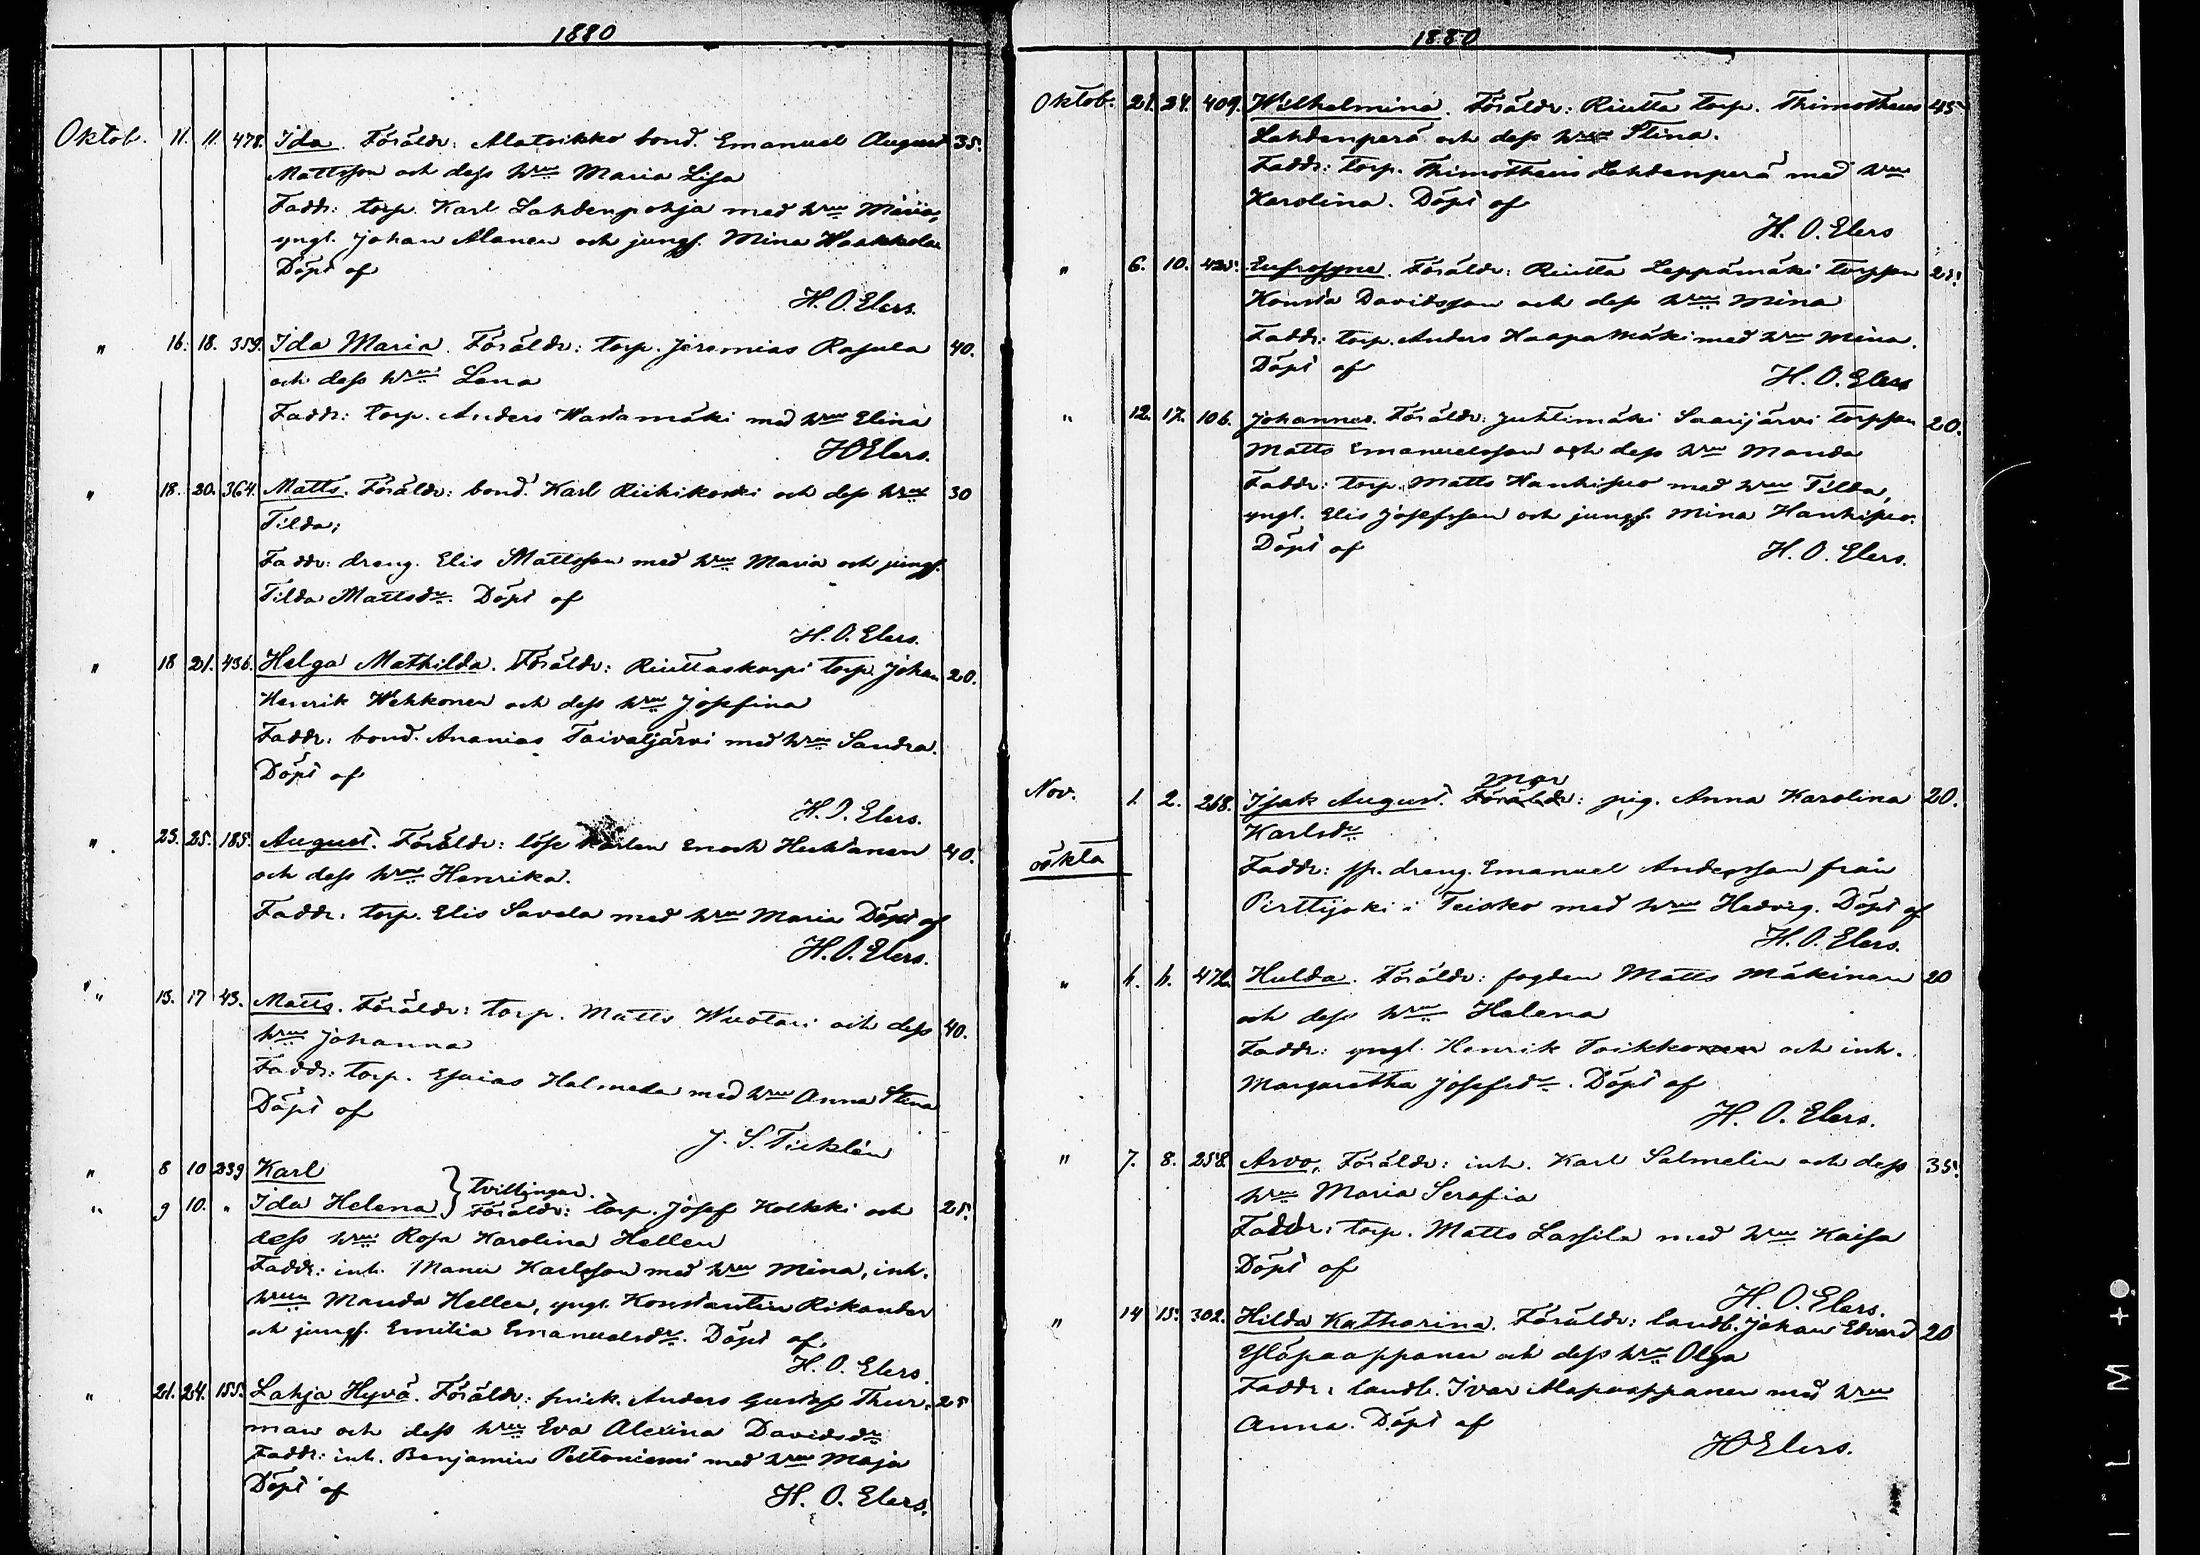 1880
Oktob. 11. 11. 478. Ida. Föräldr: Alatoikko bond. Emanuel August 35.
Mattsson och dess hru Maria Lisa
Faddr: torp. Karl Lahdenpohja med hru Maria,
yngl. Johan Alanen och jungf. Mina Waakkola
Döpt af
H. O. Elers.
" 16. 18. 359. Ida Maria. Föräldr: torp. Jeremias Rajula 40.
och dess hru Lena
Faddr: torp. Anders Wastamäki med hru Elina
HOElers.
" 18. 20. 364. Matts. Föräldr: bond. Karl Riihikoski och dess hru 30
Tilda;
Faddr: dreng. Elis Mattsson med hru Maria och jungf.
Tilda Mattsdr. Döpt af
H. O. Elers.
" 18 21. 436. Helga Mathilda. Föräldr: Riuttaskorpi torp. Johan 20.
Henrik Wehkonen och dess hru Josefina
Faddr: bond. Ananias Taivaljärvi med hru Sandra.
Döpt af
H. O. Elers.
" 23. 25. 185. August. Föräldr: löse karlen Enoch Huhtanen 40.
och dess hru Henrika.
Faddr: torp. Elis Savela med hru Maria Döpt af
H. O. Elers.
" 13. 17 43. Matts. Föräldr: torp. Matts Wuotari och dess 40.
hru Johanna
Faddr: torp. Esaias Halmela med hru Anna Stina
Döpt af
J. S. Ticklén
" 8 10 239 Karl
" 9 10. " Ida Helena } tvillingar. Föräldr: torp. Josef Kolkki och 25.
dess hru Rosa Karolina Hellen
Faddr: inh. Manu Karlsson med hru Mina, inh.
hrun Manda Hellen, yngl. Konstantin Rikander
och jungf. Emilia Emanuelsdr. Döpt af,
H. O. Elers.
" 21. 24. 155. Lahja Hyvä. Föräldr: snick. Anders Gustaf Thur- 25
man och dess hru Eva Alexina Davidsdr
Faddr: inh. Benjamin Peltoniemi med hru Maja
Döpt af
H. O. Elers.
1880
Oktob. 21. 24. 409. Wilhelmina. Föräldr: Riutta torp. Thimotheus 45.
Lahdenperä och dess hru Stina.
Faddr: torp. Thimotheus Lahdenperä med hru
Karolina. Döpt af
H. O. Elers
" 6. 10. 425. Eufrosyne. Föräldr: Riutta Leppämäki torpson 25.
Konsta Davidsson och dess hru Mina
Faddr: torp. Anders Haapamäki med hru Mina.
Döpt af
H. O. Elers
" 12. 17. 106. Johannes. Föräldr: Juhtimäki Saarijärvi torpson 20.
Matts Emanuelsson och dess hru Manda
Faddr: torp. Matts Hanhisuo med hru Tilda,
yngl. Elis Josefsson och jungf. Mina Hanhisuo.
Döpt af
H. O. Elers.
Mor
Nov. 1. 2. 268. Isak August. Föräldr: pig. Anna Karolina 20.
Karlsdr
oäkta
Faddr: sp. dreng. Emanuel Andersson från
Pirttijoki i Teisko med hru Hedvig. Döpt af
H. O. Elers.
" 4. 4. 472. Hulda. Föräldr: fogden Matts Mäkinen 20
och dess hru Helena
Faddr: yngl. Henrik Toikkonen och inh.
Margaretha Josefsdr. Döpt af
H. O. Elers.
" 7. 8. 258. Arvo. Föräldr: inh. Karl Salmelin och dess 35.
hru Maria Serafia
Faddr: torp. Matts Lassila med hru Kaisa
Döpt af
H. O. Elers.
" 14 15. 302. Hilda Katharina. Föräldr: landb. Johan Edvard 20
Yläpaappanen och dess hru Olga
Faddr: landb. Ivar Alapaappanen med hru
Anna. Döpt af
HOElers.